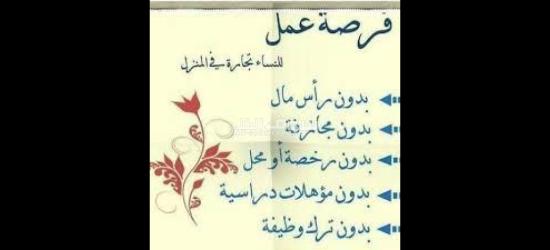 فرصة عمل
للنساء تجارة في المنزل
بدون رأس مال
بدون مجازفة
بدون رخصة أو محل
بدون مؤهلات دراسية
بدون ترك وظيفة